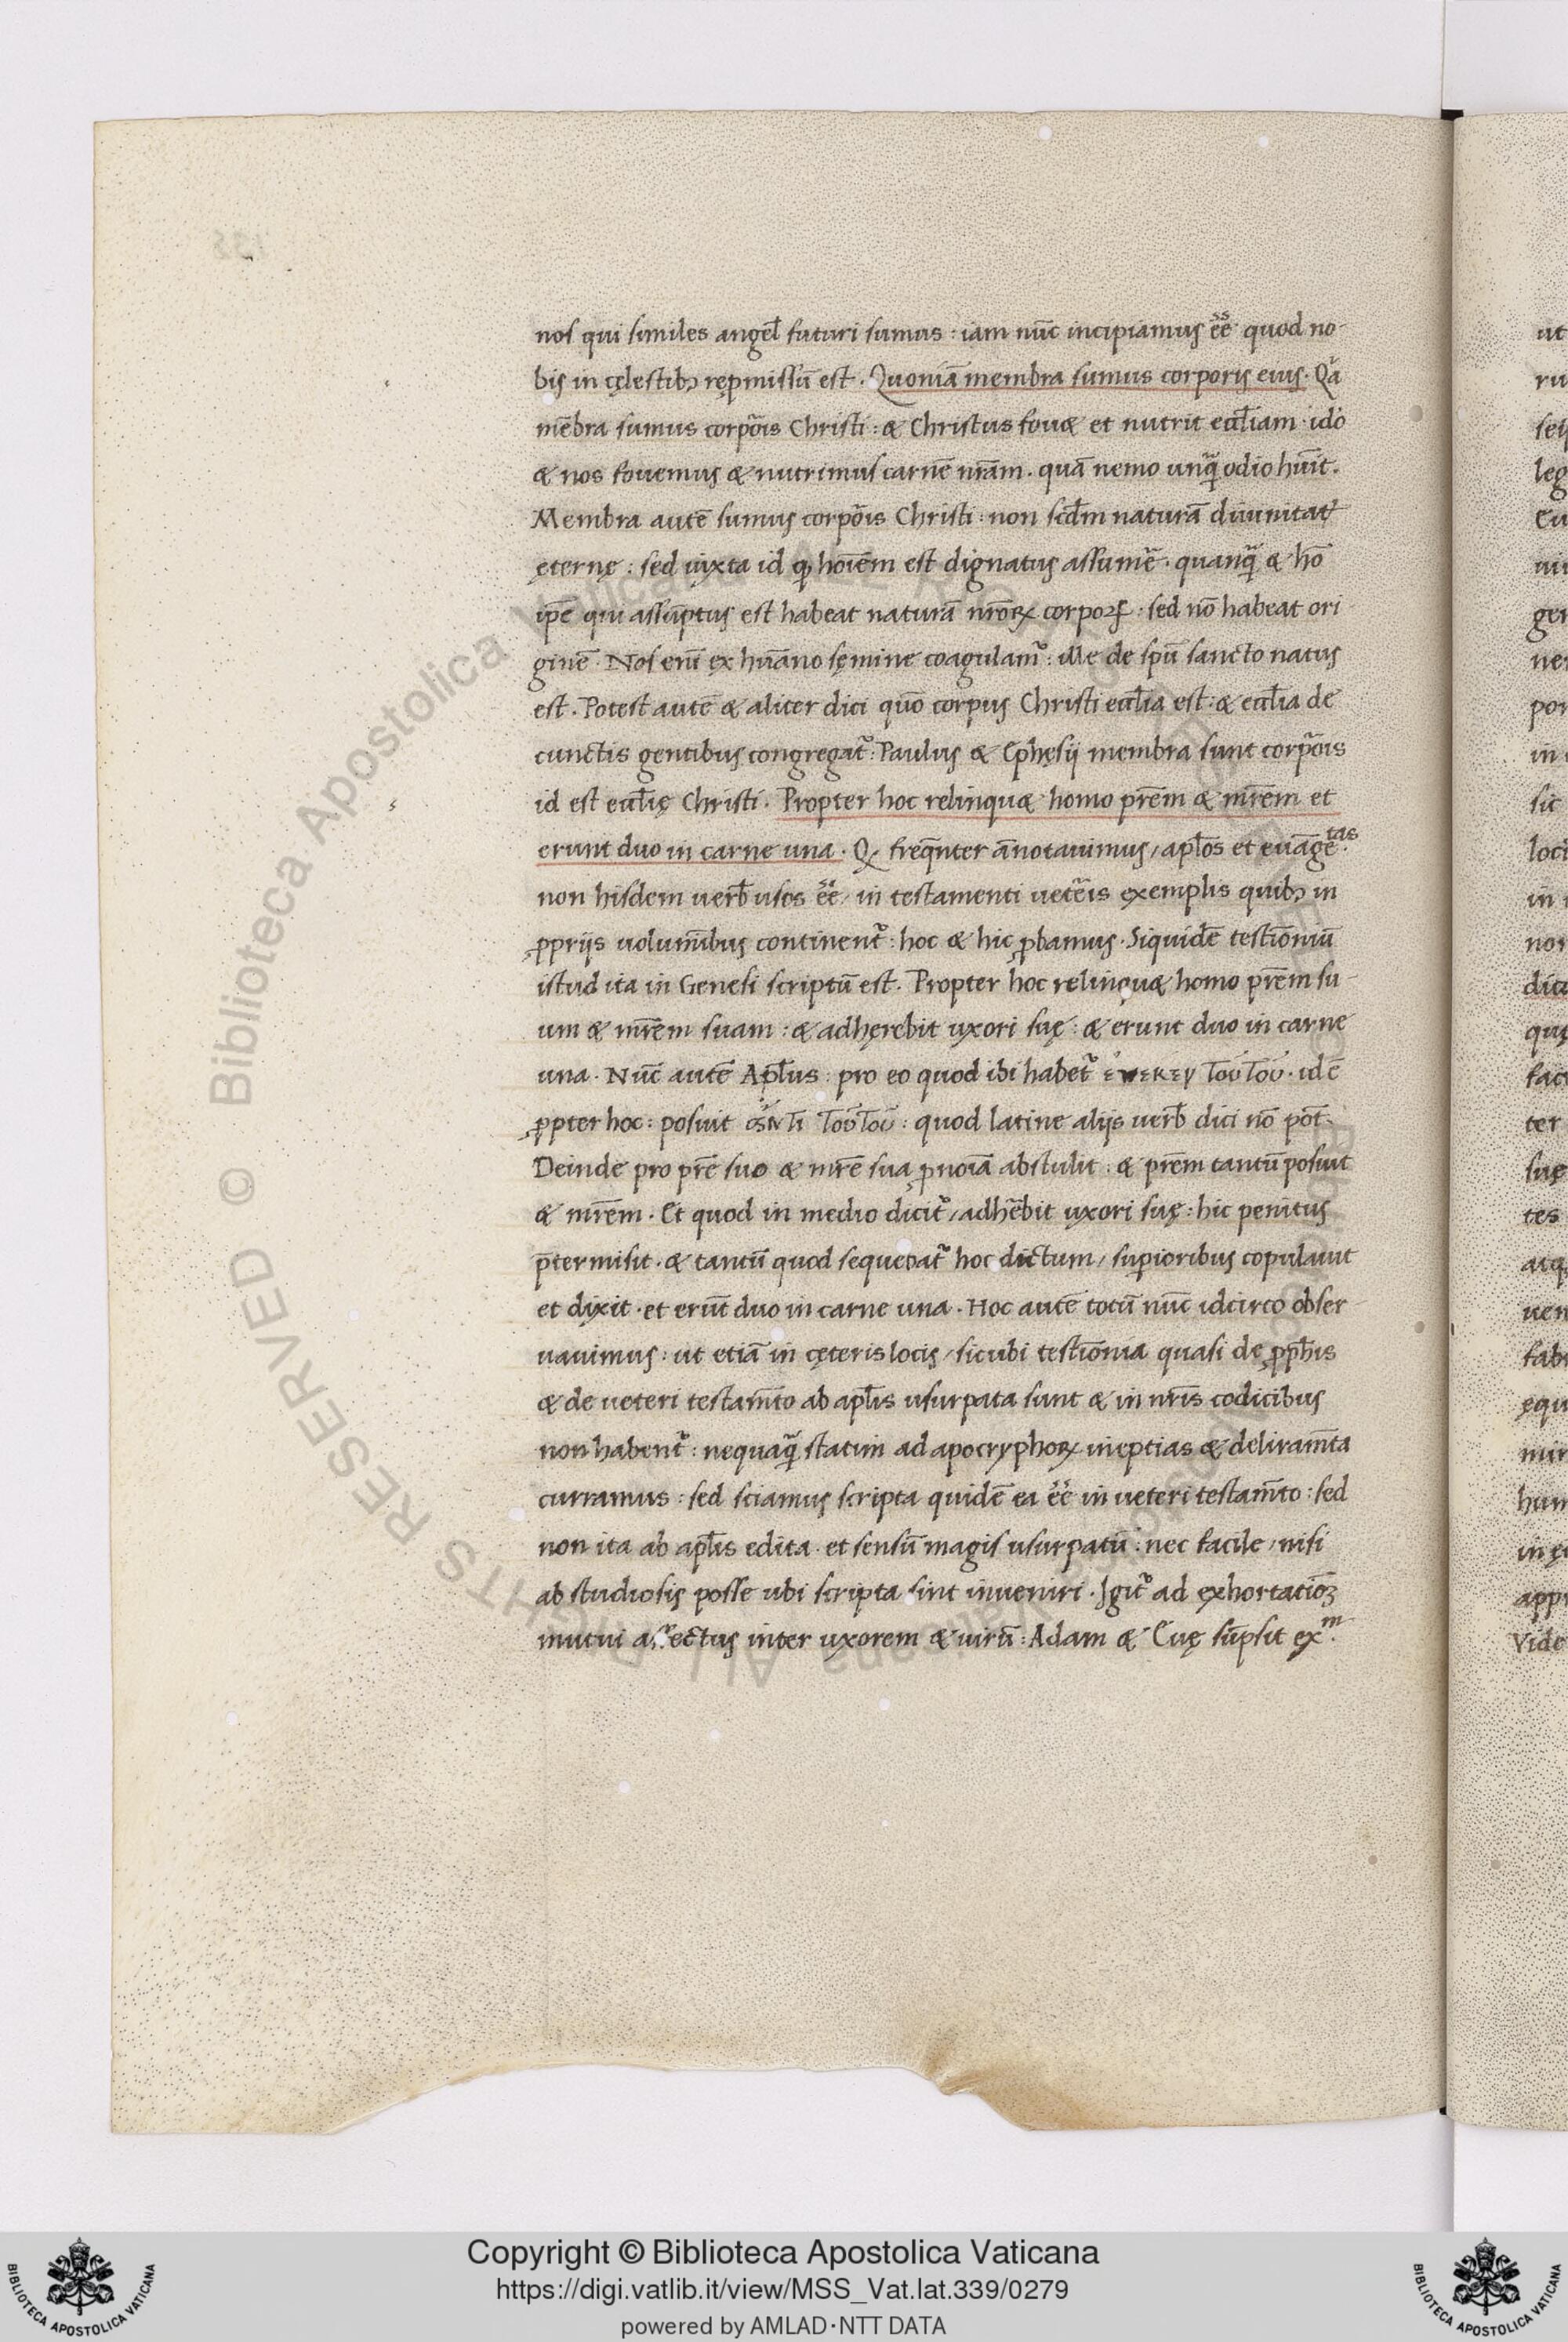 nos qui similes angel̄ futuri sumus : iam nūc incipiamus ēē quod no-
bis in cęlestibꝫ rępmissū est . Quoniā membra sumus corporis eius . Qā
mēbra sumus corpōis Christi : & Christus fouet et nutrit eccl̄iam · idō
& nos fouemus & nutrimus carnē nr̄am . quā nemo unq̄ odio hūit .
Membra autē sumus corpōis Christi : non scd̄m naturā diuinitat
ęternę : sed iuxta id qꝫ hoīem est dignatus assumē̄ . quanq̄ & hō
ip̄e qui assūptus est habeat naturā nr̄oꝝ corpoꝝ : sed nō habeat ori
ginē . Nos enī ex hūano sęmine coagulamr̄ : ille de spū sancto natus
est . Potest autē & aliter dici quō corpus Christi eccl̄ia est : & eccl̄ia de
cunctis gentibus congregatr̄ : Paulus & Ephęsij membra sunt corpōis
id est eccl̄ię Christi . Propter hoc relinquet homo pr̄em & mr̄em et
erunt duo in carne una . Qꝫ freq̄nter ānotauimus / apl̄os et euāge.tas
non hisdem uerb̄ usos ēē / in testamenti uetēis exemplis quibꝫ in
ꝓprijs uolumībus continentr̄ : hoc & hic ꝓbamus . Siquidē testīoniū
istud ita in Genesi scriptū est . Propter hoc relinquet homo pr̄em su-
um & mr̄em suam : & adhęrebit uxori suę : & erunt duo in carne
una . Nūc autē Apl̄us : pro eo quod ibi habetr̄ ἕνεκεν τούτου . id ē
ꝓpter hoc : posuit ἀντὶ τούτου : quod latine alijs uerb̄ dici nō pōt .
Deinde pro pr̄e suo & mr̄e sua ꝓnoīa abstulit : & pr̄em tantū posuit
& mr̄em . Et quod in medio dicitr̄ / adhēbit uxori suę : hic penitus
p̄termisit . & tantū quod sequebatr̄ hoc dictum / sup̄ioribus copulauit
et dixit . et erūt duo in carne una . Hoc autē totū nūc idcirco obser-
uauimus : ut etiā in cęteris locis / sicubi testīonia quasi de ꝓph̄is
& de ueteri testam̄to ab apl̄is usurpata sunt & in nr̄is codicibus
non habentr̄ : nequaq̄ statim ad apocryphoꝝ ineptias & deliram̄ta
curramus : sed sciamus scripta quidē ea ēē in ueteri testam̄to : sed
non ita ab apl̄is edita . et sensū magis usurpatū : nec facile / nisi
ab studiosis posse ubi scripta sint inueniri . Igitr̄ ad exhortatiōꝫ
mutui affectus inter uxorem & uirū : Adam & Euę sūpsit ex.m
Copyright © Biblioteca Apostolica Vaticana
https://digi.vatlib.it/view/MSS_Vat.lat.339/0279
powered by AMLAD·NTT DATA